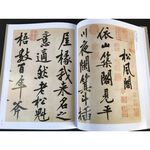 松風閣
依山築閣見平
川夜闌箕斗插
屋椽我來名之
意適然老松魁
梧數百年斧